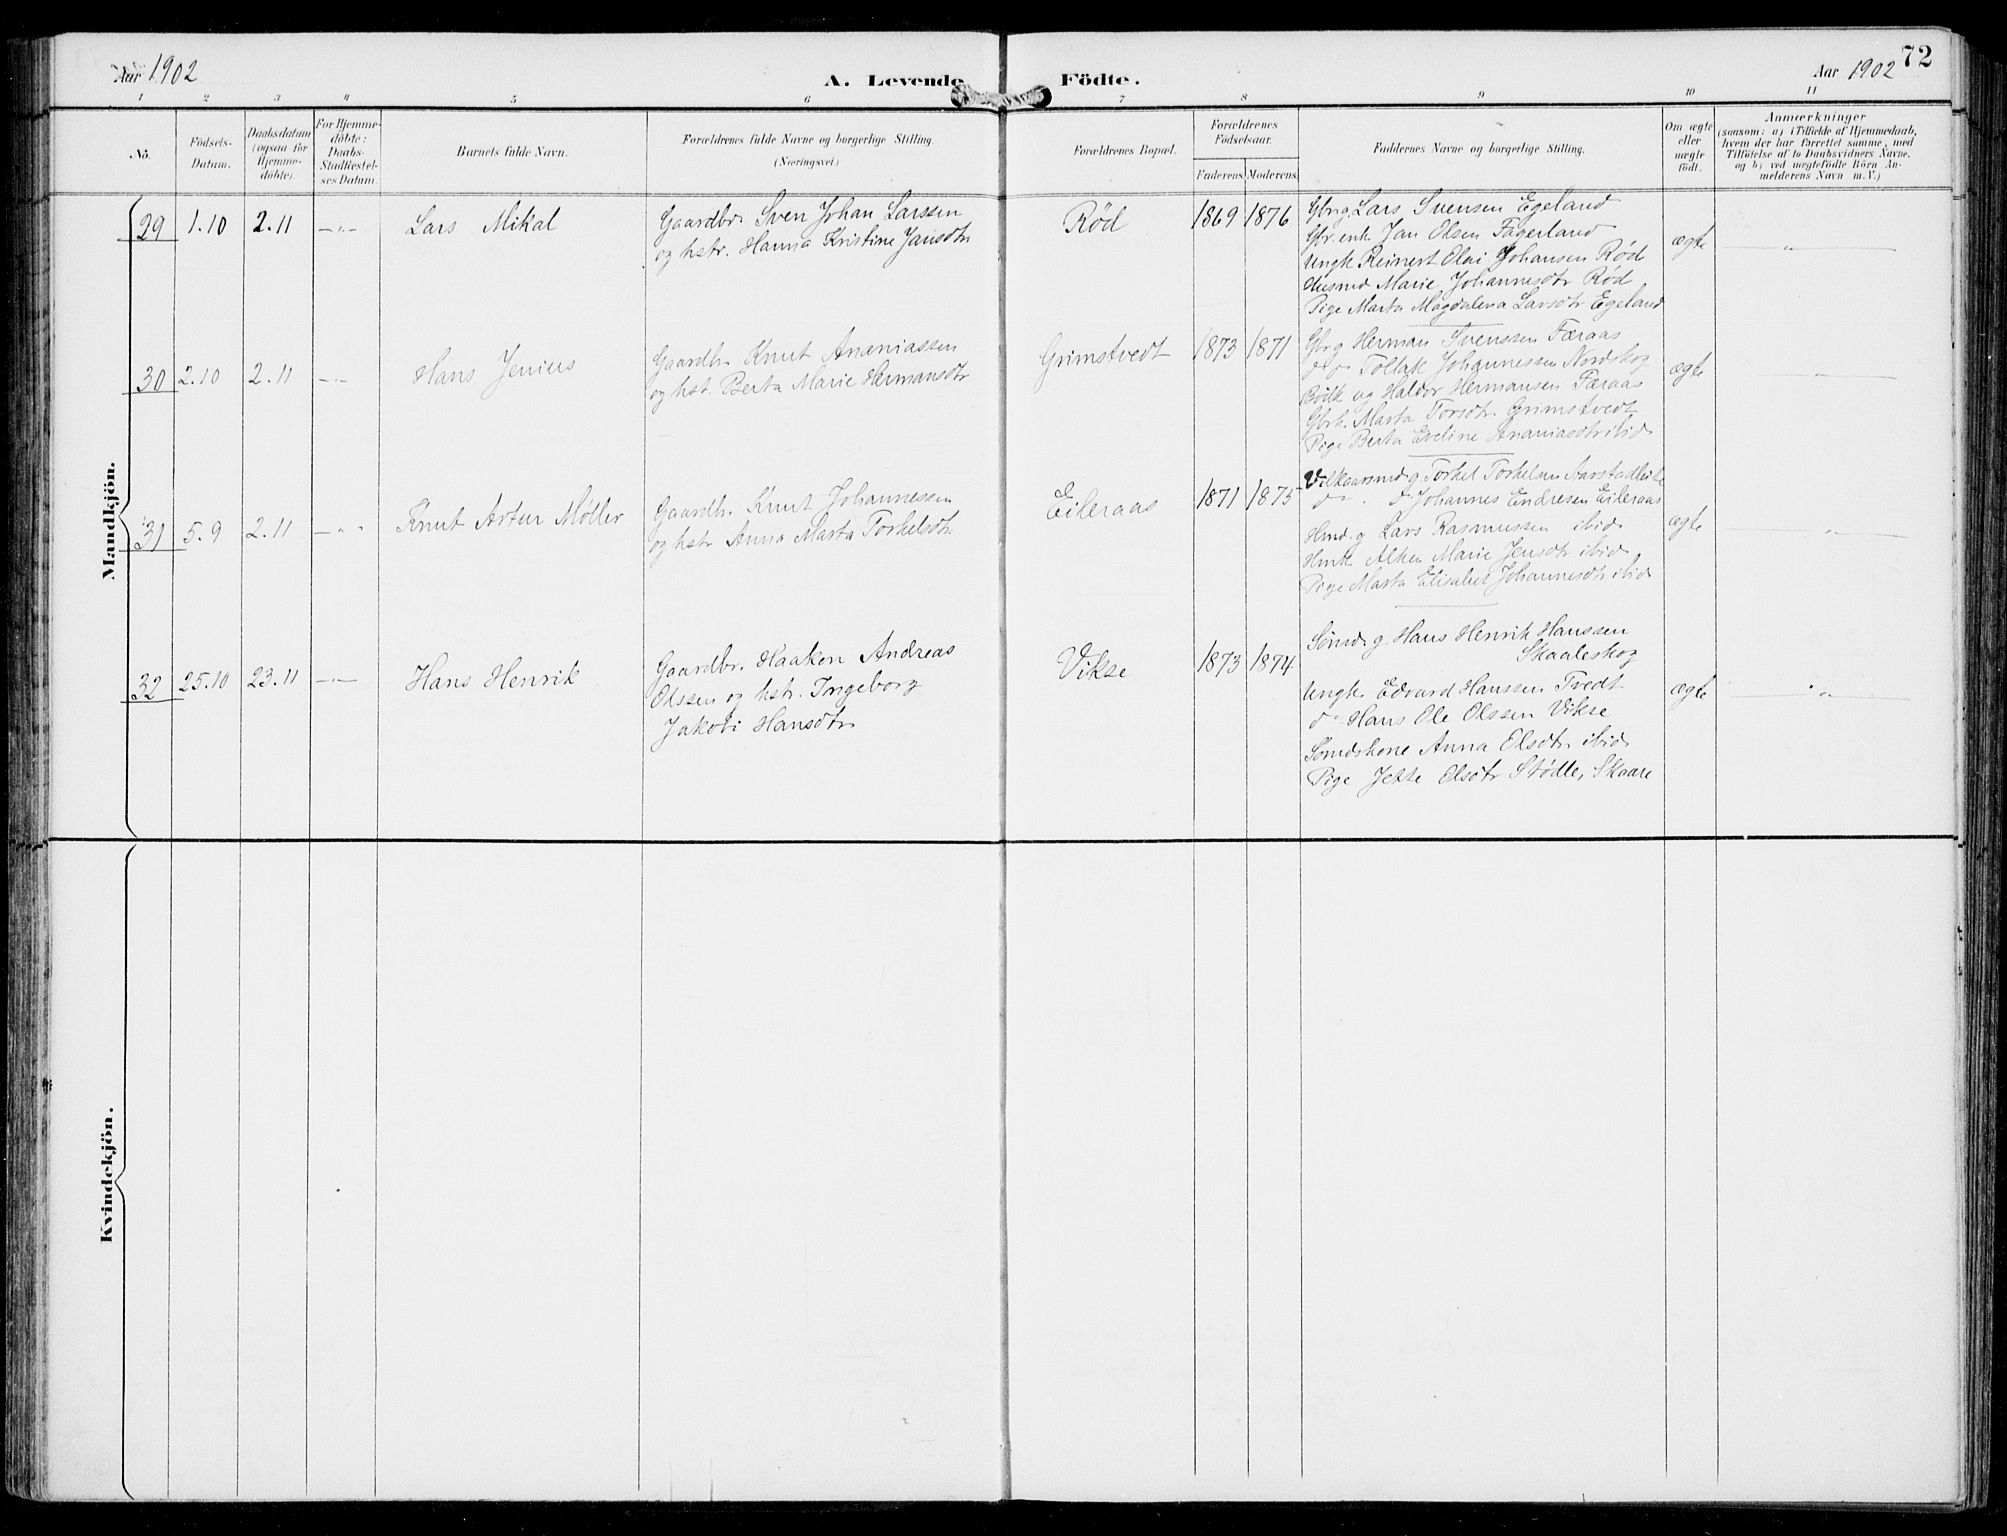 Aar 1902
A. Levende Födte.
Aar 1902
72
1 2 3 4 5 6 7 8 9 10 11
No.
Födsels-
Datum.
Daabsdatum
(ogsaa for
Hjemme-
döbte).
For Hjemme-
döbte:
Daabs-
Stadfæstel-
ses Datum.
Barnets fulde Navn.
Forældrenes fulde Navne og borgerlige Stilling.
(Næringsvei.)
Forældrenes Bopæl.
Forældrenes
Födselsaar.
Faderens. Moderens.
Faddernes Navne og borgerlige Stilling.
Om ægte
eller
uægte
födt.
Anmærkninger
(saasom: a) i Tilfælde af Hjemmedaab,
hvem der har forrettet samme, med
Tilföielse af to Daabsvidners Navne.
og b) ved uægtefödte Börn An-
melderens Navn m. V.)
Mandkjön.
29 1.10 2.11 —"— Lars Mikal
Gaardbr. Sven Johan Larssen
og hstr. Hanna Kristine Jansdtr
Rød 1869 1876
Gbrg. Lars Svensen Egeland
Gbr. enk. Jan Olsen Fagerland
Ungk Reinert Olai Johansen Rød
Husmd Marie Johannesdtr Rød
Pige Marta Magdalena Larsdtr Egeland
ægte —"—
30 2.10 2.11 —"— Hans Jenius
Gaardbr. Knut Ananiassen
og hst. Berta Marie Hermansdtr
Grimstvedt 1873 1871
Gbr g Herman Svenssen Færaas
do do Tollak Johannessen Nordskog
og Haldor Hermansen Færaas
Gbrk. Marta Torsdtr. Grimstvedt
Pige Berta Eveline Ananiasdtr ibid
ægte —"—
31 5.9 2.11 —"— Knut Artur Møller
Gaardbr. Knut Johannessen
og hstr Anna Marta Torkelsdtr.
Eileraas 1871 1875
Vilkaarsmd g. Torkel Torkelsen
do . do Johannes Endresen Eileraas
Hmd. g Lars Rasmussen ibid
Hmk Alken Marie Jensdtr ibid
Pige Marta Elisabet Johannesdtr ibid
ægte —"—
32 25.10 23.11 —"— Hans Henrik
Gaardbr. Haaken Andreas
Olssen og hstr. Ingeborg
Jakobi Hansdtr
Vikse 1873 1874
Sømd. g. Hans Henrik Hanssen
Skaaleskog
Ungk. Edvard Hanssen Tvedt
do Hans Ole Olssen Vikse
Sømdskone Anna Olsdtr ibid
Pige Jette Olsdtr Stødle, Skaare
ægte —"—
Kvindekjön.